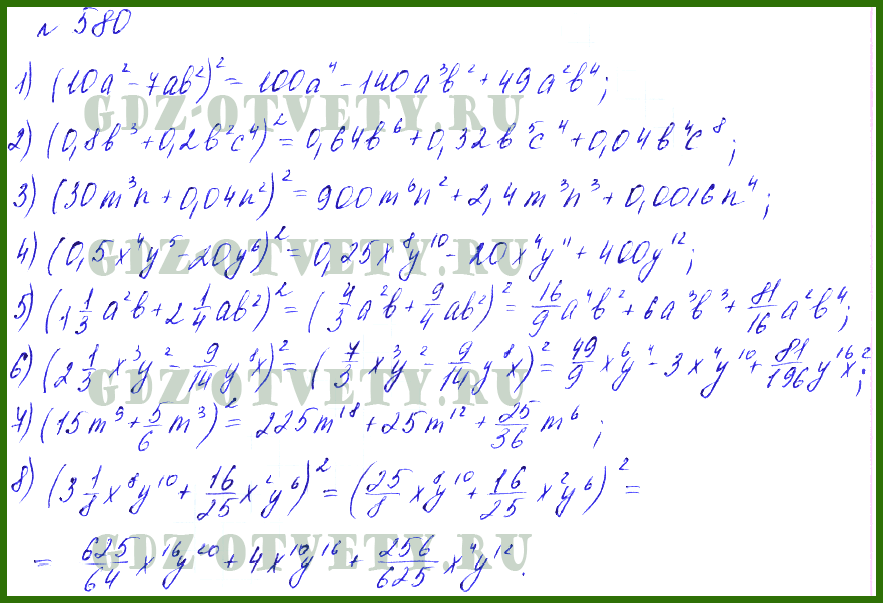 № 580
1) (10a² - 7ab²)² = 100a⁴ - 140a³b² + 49a²b⁴;
2) (0,8b³ + 0,2b²c⁴)² = 0,64b⁶ + 0,32b⁵c⁴ + 0,04b⁴c⁸;
3) (30m³n + 0,04n²)² = 900m⁶n² + 2,4m³n³ + 0,0016n⁴;
4) (0,5x⁴y⁵ - 20y⁶)² = 0,25x⁸y¹⁰ - 20x⁴y¹¹ + 400y¹²;
5) (1 1/3 a²b + 2 1/4 ab²)² = (4/3 a²b + 9/4 ab²)² = 16/9 a⁴b² + 6a³b³ + 81/16 a²b⁴;
6) (2 1/3 x³y² - 9/14 y⁸x)² = (7/3 x³y² - 9/14 y⁸x)² = 49/9 x⁶y⁴ - 3x⁴y¹⁰ + 81/196 y¹⁶x²;
7) (15m⁹ + 5/6 m³)² = 225m¹⁸ + 25m¹² + 25/36 m⁶;
8) (3 1/8 x⁸y¹⁰ + 16/25 x²y⁶)² = (25/8 x⁸y¹⁰ + 16/25 x²y⁶)² =
= 625/64 x¹⁶y²⁰ + 4x¹⁰y¹⁶ + 256/625 x⁴y¹².
GDZ-OTVETY.RU
GDZ-OTVETY.RU
GDZ-OTVETY.RU
GDZ-OTVETY.RU